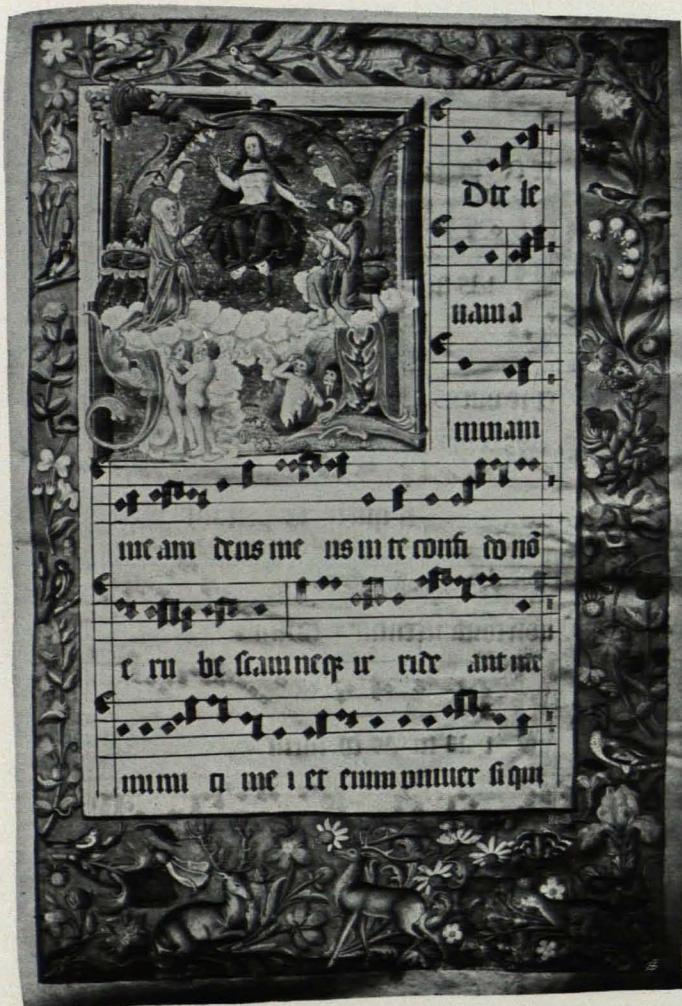 D te le
uam a
nimam
me am deus me us in te confi do nō
e ru be scam neqꝫ ir ride ant me
inimi ci me i et enim vniuer si qui